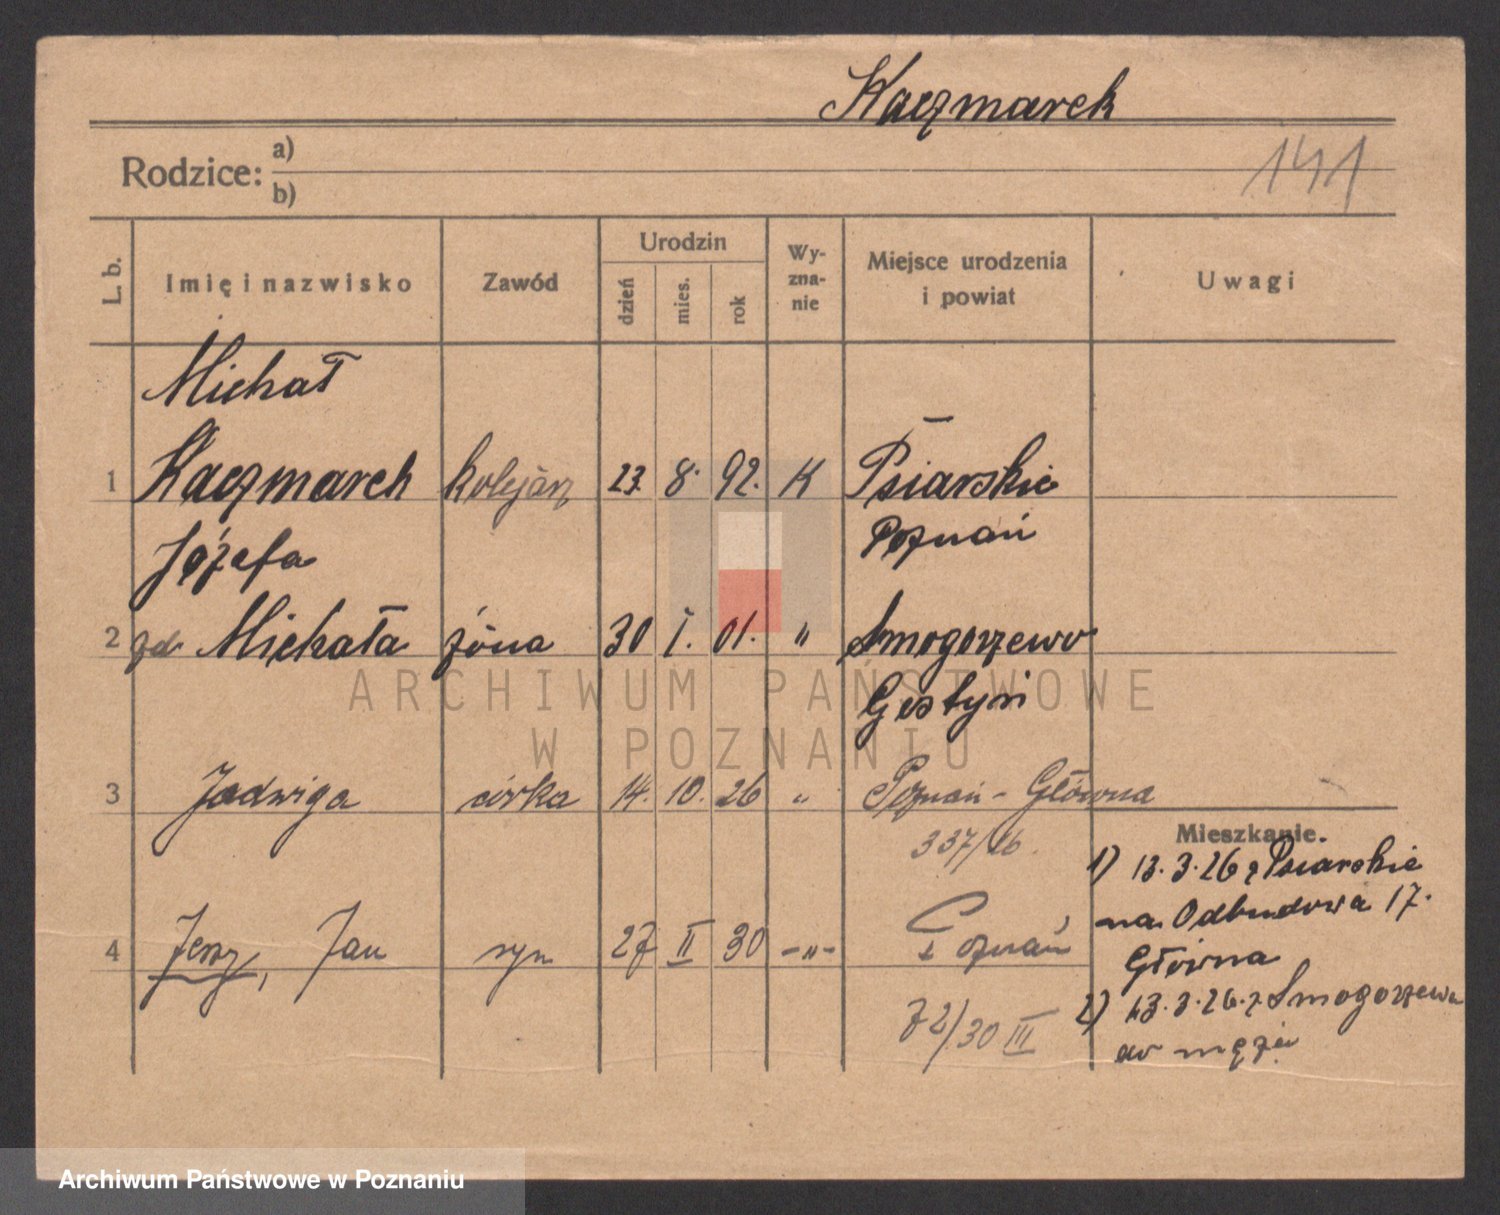 Kaczmarek
Rodzice: a)
b)
141
L. b.
Imię i nazwisko
Zawód
Urodzin
dzień
mies.
rok
Wy-
zna-
nie
Miejsce urodzenia
i powiat
Uwagi
Michał
1 Kaczmarek kolejarz 23. 8. 92. K Psiarskie
Poznań
Józefa
2 żd. Michała żona 30 I. 01. " Smogorzewo
Gostyń
3 Jadwiga córka 14. 10. 26 " Poznań - Główna
337/26.
4 Jerzy, Jan syn 27 II 30 -"- Poznań
72/30 III
Mieszkanie.
1) 13.3.26 z Psiarskie
na Odbudowa 17.
Główna
2) 13.3.26. z Smogorzewa
do męża
ARCHIWUM PAŃSTWOWE
W POZNANIU
Archiwum Państwowe w Poznaniu